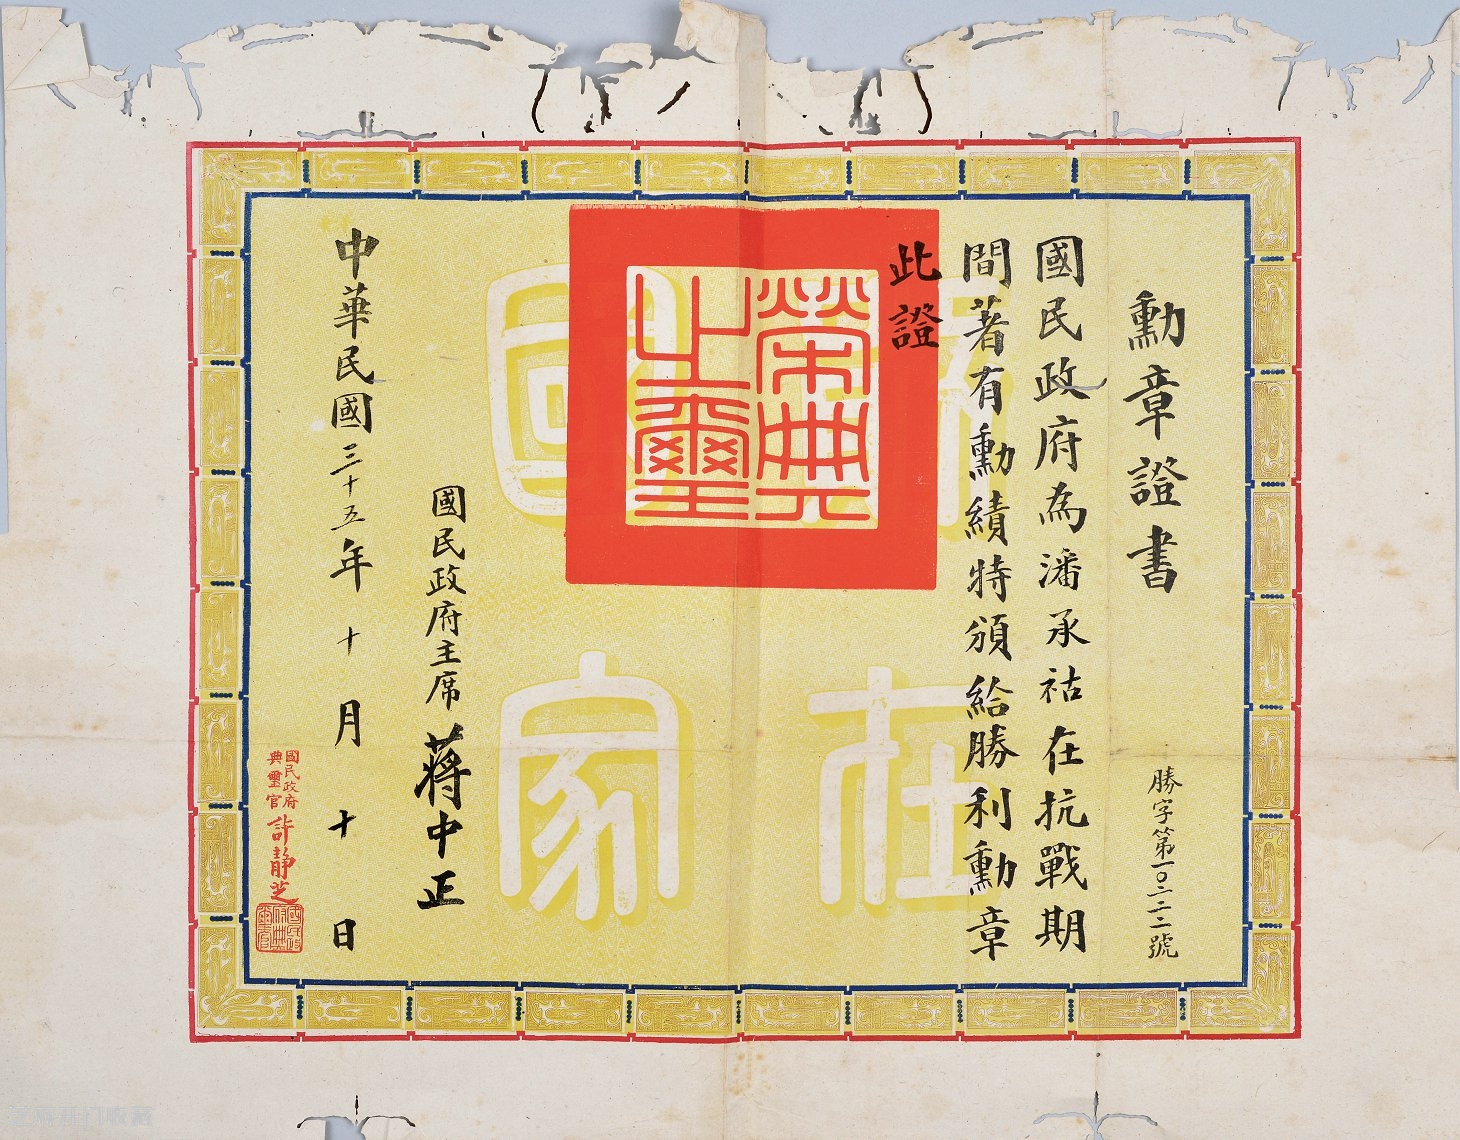 勳章證書
勝字第一〇二二二號
國民政府為潘承祜在抗戰期
間著有勳績特頒給勝利勳章
此證
榮典
之璽
國民政府主席蔣中正
中華民國三十五年十月十日
國民政府
典璽官許靜芝
國在
家